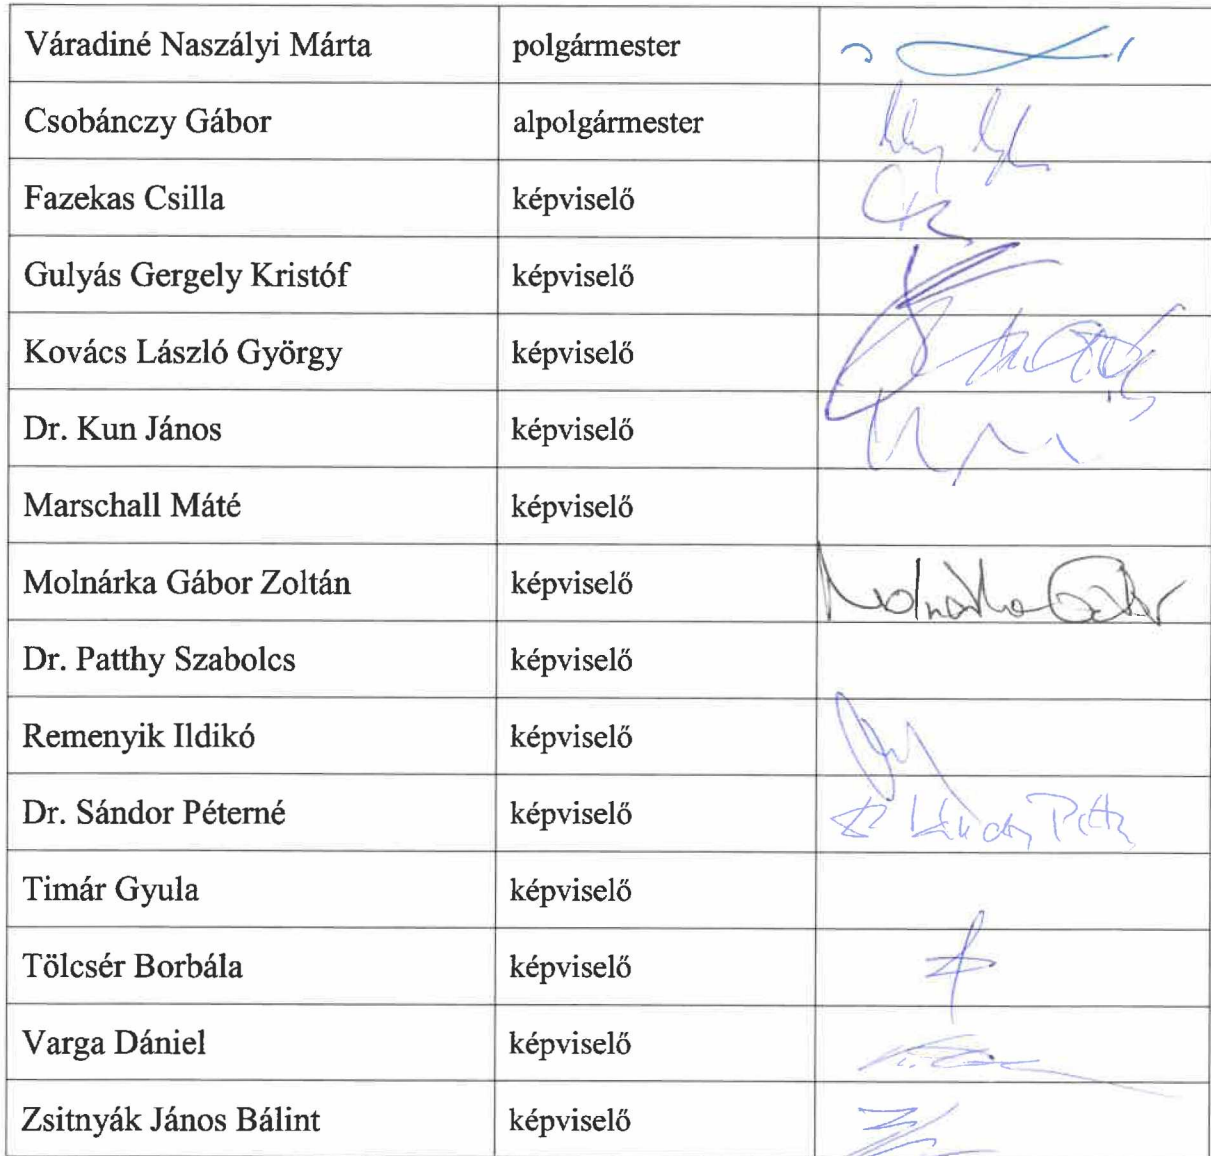 Váradiné Naszályi Márta polgármester
Csobánczy Gábor alpolgármester
Fazekas Csilla képviselő
Gulyás Gergely Kristóf képviselő
Kovács László György képviselő
Dr. Kun János képviselő
Marschall Máté képviselő
Molnárka Gábor Zoltán képviselő Molnárka Gábor
Dr. Patthy Szabolcs képviselő
Remenyik Ildikó képviselő
Dr. Sándor Péterné képviselő
Timár Gyula képviselő
Tölcsér Borbála képviselő
Varga Dániel képviselő
Zsitnyák János Bálint képviselő